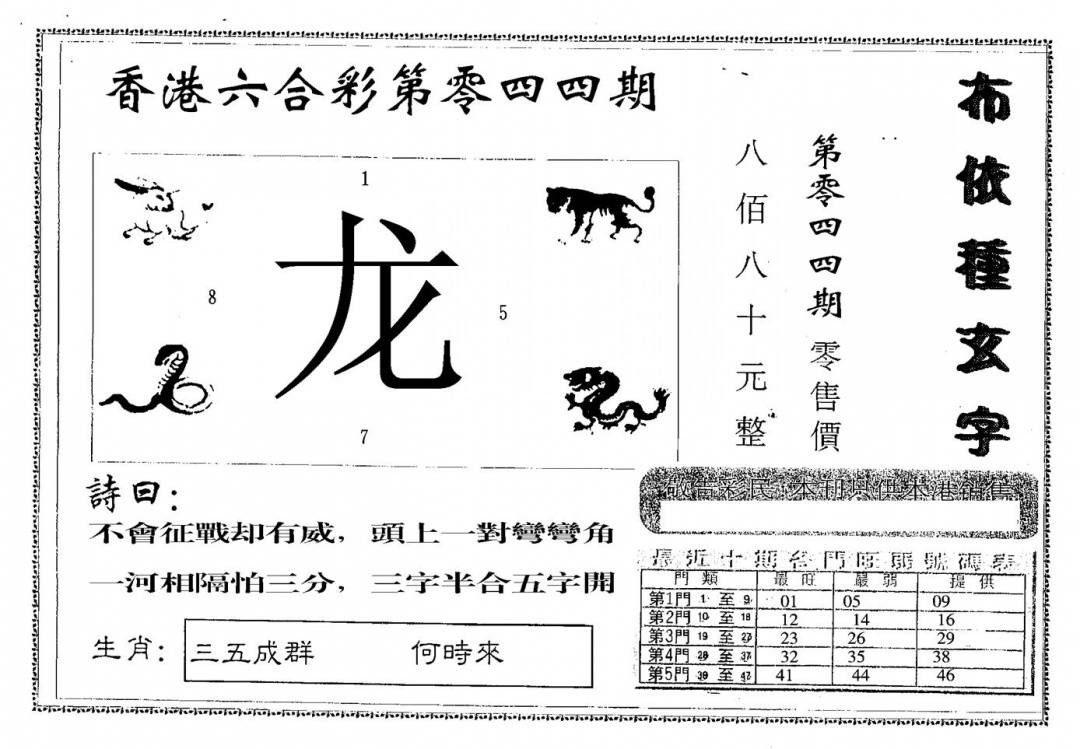 香港六合彩第零四四期
布依種玄字
第零四四期零售價
八佰八十元整
1
龙
8
5
7
敬告彩民:本刊只供本港銷售
詩曰:
不會征戰却有威,頭上一對彎彎角
一河相隔怕三分,三字半合五字開
生肖: 三五成群 何時來
最近十期各門旺弱號碼表
門類 最旺 最弱 提供
第1門 1 至 9 01 05 09
第2門 10 至 18 12 14 16
第3門 19 至 27 23 26 29
第4門 28 至 37 32 35 38
第5門 38 至 47 41 44 46